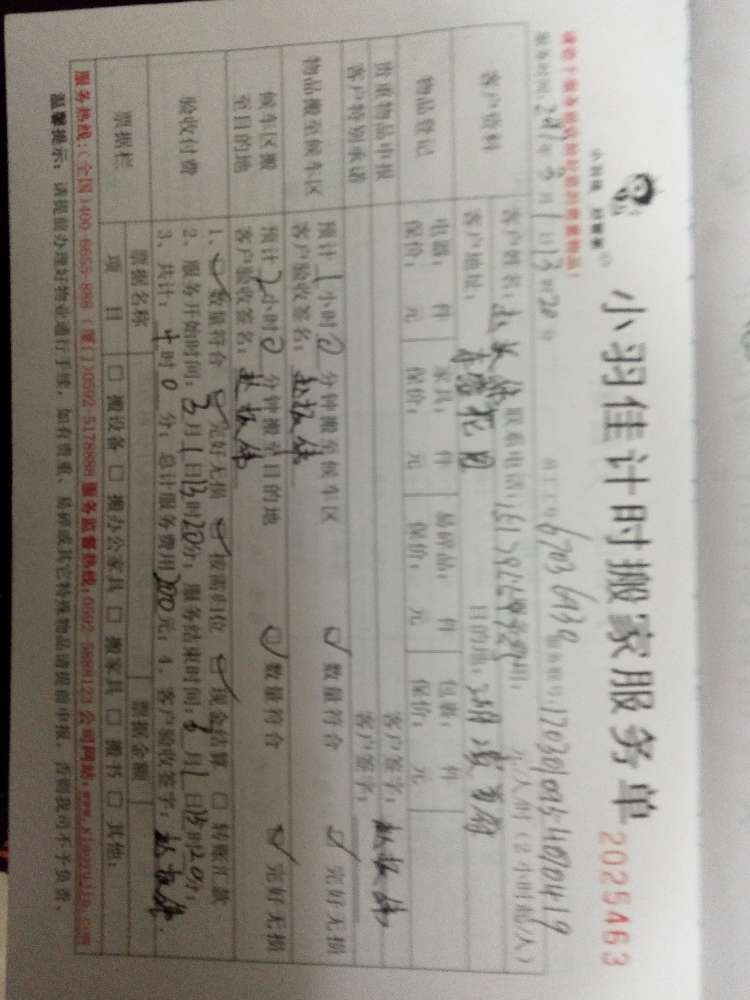 小羽佳计时搬家服务单 2025463
小羽佳 好管家
员工工号 67036930 服务账号:170301095404004419
请您于服务前收好您的贵重物品!
服务时间 2017年3月1日13时20分
客户资料 客户姓名: 联系电话: 服务费用: 元/人时(2小时起/人)
客户地址: 目的地:
物品登记 电器: 件 家具: 件 易碎品: 件 包裹: 件
保价: 元 保价: 元 保价: 元 保价: 元
贵重物品申报 客户签字:
客户特别承诺 客户签字:
物品搬至候车区 预计1小时0分钟搬至候车区 数量符合 完好无损
客户验收签名:
候车区搬至目的地 预计2小时0分钟搬至目的地 数量符合 完好无损
客户验收签名:
验收付费 1、数量符合 完好无损 按需归位 现金结算 转账汇款
2、服务开始时间:3月1日13时20分;服务结束时间:3月1日 时20分;
3、共计: 时0分;总计服务费用200元;4、客户验收签字:
票据栏 票据名称 票据金额
项目 □搬设备 □搬办公家具 □搬家具 □搬书 □其他:
服务热线:(全国)400-6655-888 (厦门)0592-5178898 服务监督热线:0592-5888123 公司网站:www.xiaoyujia.com
温馨提示:请提前办理好物业通行手续,如有贵重、易碎或其它特殊物品请提前申报,否则我司不予负责。